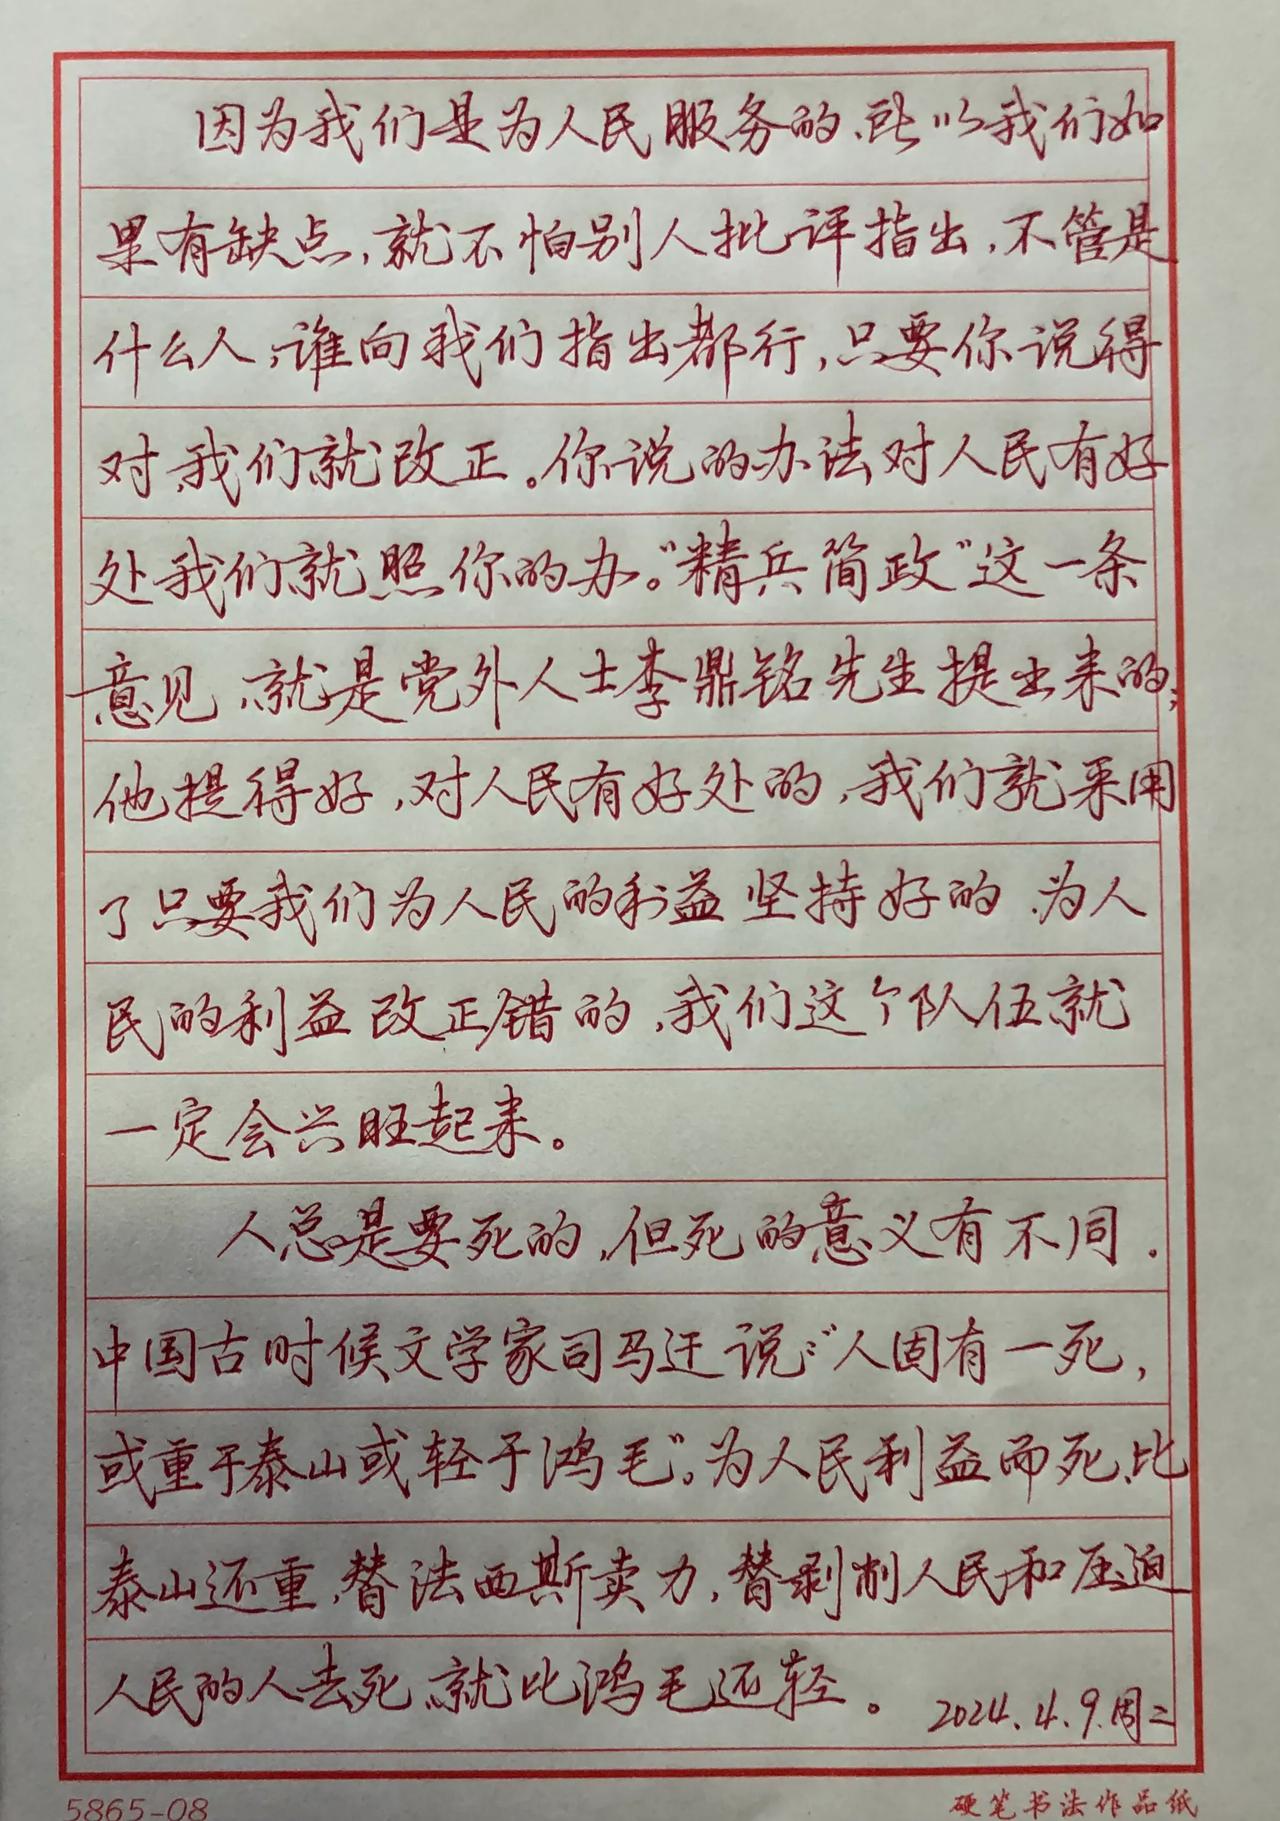 因为我们是为人民服务的,所以我们如
果有缺点,就不怕别人批评指出,不管是
什么人,谁向我们指出都行,只要你说得
对,我们就改正。你说的办法对人民有好
处我们就照你的办。“精兵简政”这一条
意见,就是党外人士李鼎铭先生提出来的;
他提得好,对人民有好处的,我们就采用
了只要我们为人民的利益坚持好的,为人
民的利益改正错的,我们这个队伍就
一定会兴旺起来。
人总是要死的,但死的意义有不同.
中国古时候文学家司马迁说:“人固有一死,
或重于泰山或轻于鸿毛”。为人民利益而死,比
泰山还重,替法西斯卖力,替剥削人民和压迫
人民的人去死,就比鸿毛还轻。2024.4.9.周二
5865-08
硬笔书法作品纸